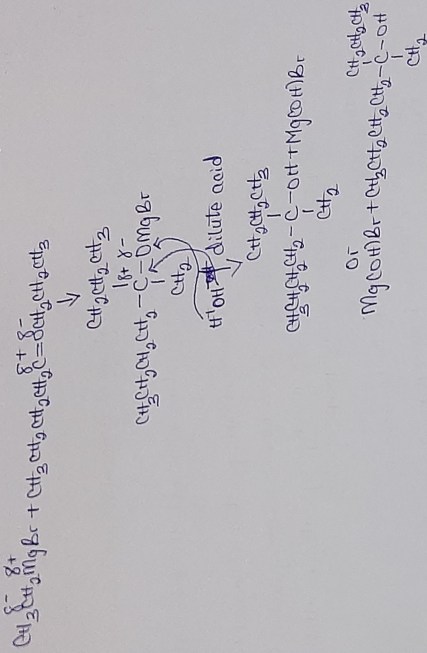 δ- δ+ δ+ δ-
CH3CH2MgBr + CH3CH2CH2CH2C=OCH2CH2CH3
↓
CH2CH2CH3
| δ+ δ-
CH3CH2CH2CH2-C-OMgBr
|
CH2
H+OH- dilute acid
CH2CH2CH3
|
CH3CH2CH2CH2-C-OH+Mg(OH)Br
|
CH2
Or
CH2CH2CH3
|
Mg(OH)Br+CH3CH2CH2CH2CH2-C-OH
|
CH2